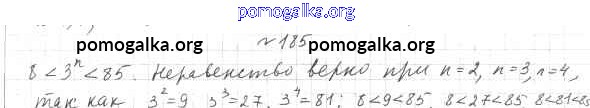 pomogalka.org
pomogalka.org pomogalka.org
№185
8 < 3ⁿ < 85. Неравенство верно при n=2, n=3, n=4,
так как 3²=9 3³=27, 3⁴=81; 8<9<85 8<27<85 8<81<85